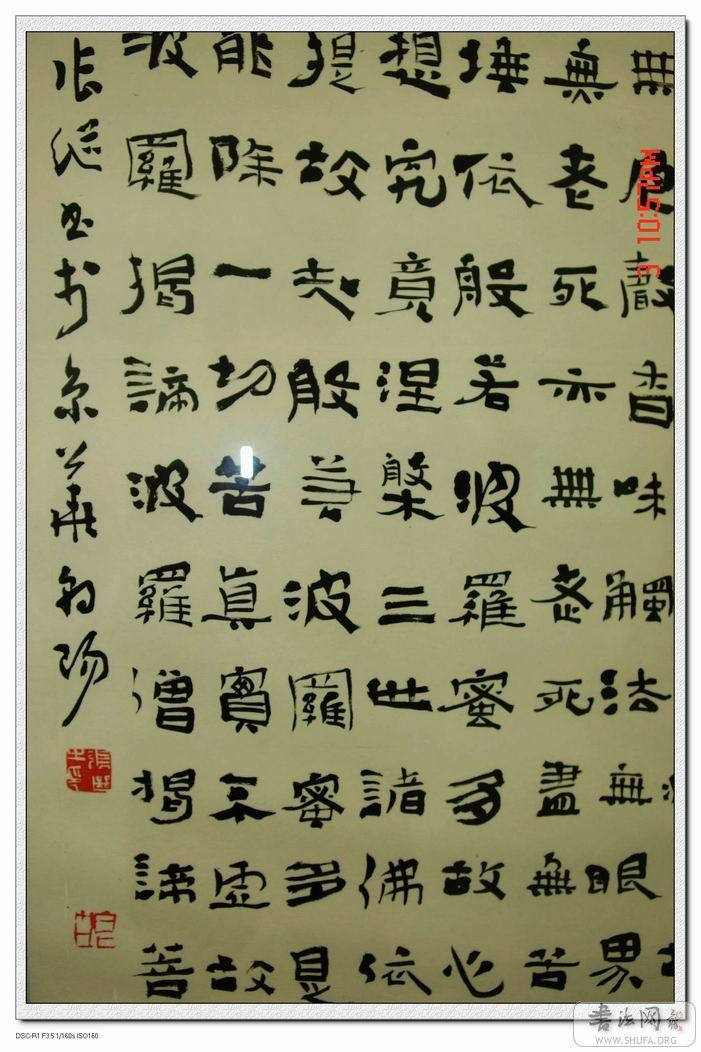 無色聲香味觸法無眼界
無老死亦無老死盡無苦
埵依般若波羅蜜多故心
想究竟涅槃三世諸佛依
提故知般若波羅蜜多是
能除一切苦真實不虛故
波羅揭諦波羅僧揭諦菩
張繼書於京華朝陽
3 10:57PM
書法网
WWW.SHUFA.ORG
DSC-R1 F3.5 1/160s ISO160